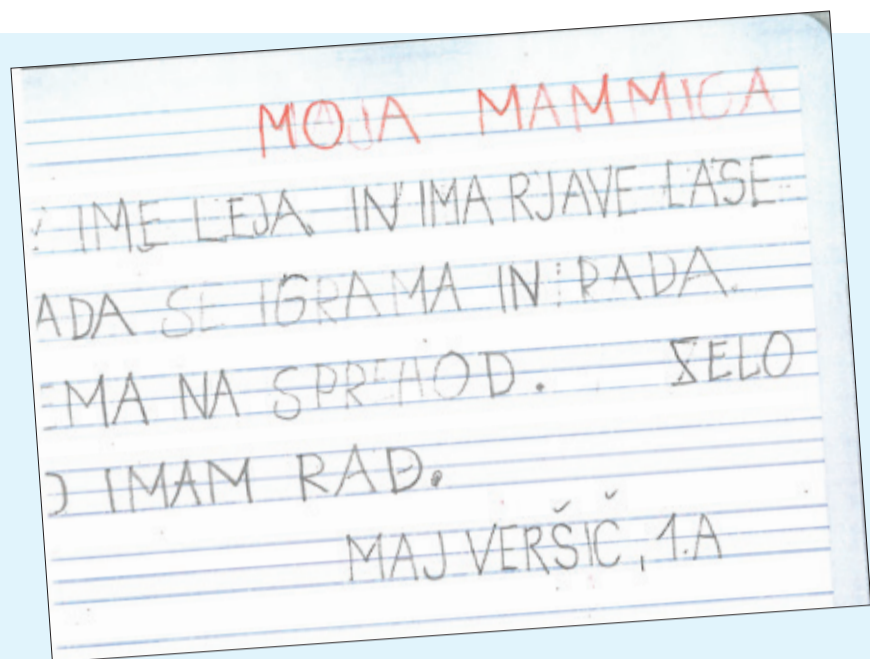 MOJA MAMMICA
IME LEJA IN IMA RJAVE LASE
ADA SE IGRAMA IN RADA
MA NA SPREHOD. ZELO
IMAM RAD.
MAJ VERŠIČ, 1.A